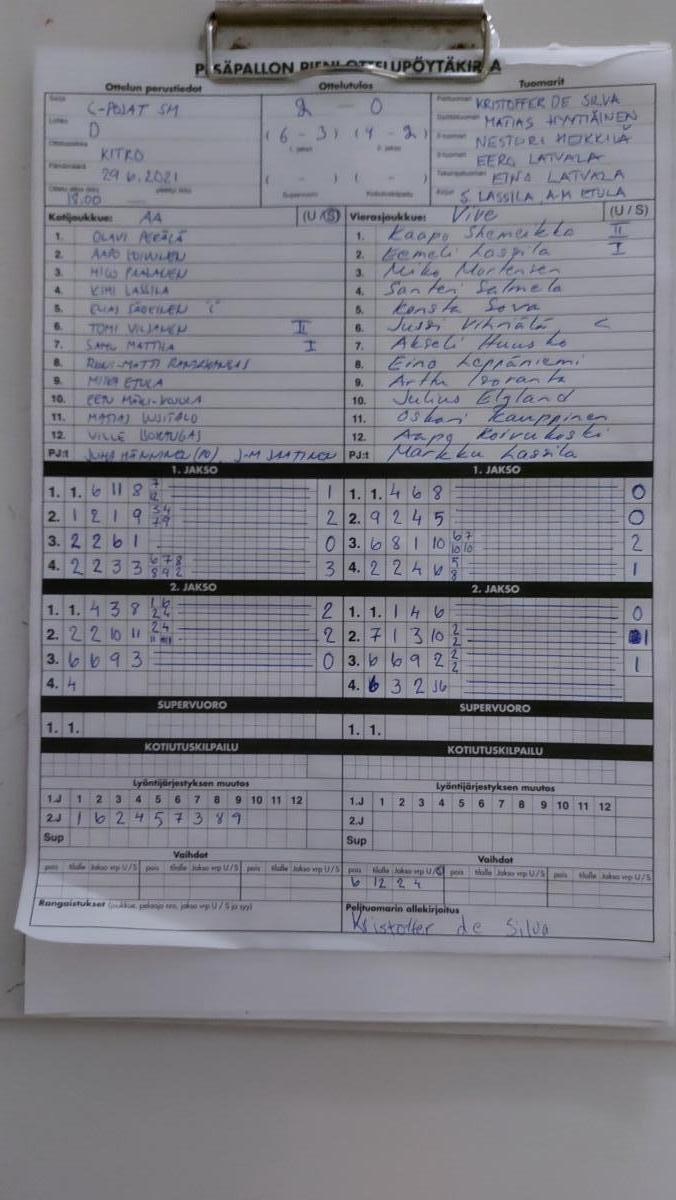 PESÄPALLON PIENI OTTELUPÖYTÄKIRJA
Ottelun perustiedot Ottelutulos Tuomarit
Sarja C-POJAT SM
Lohko D
Ottelupaikka KITRO
Päivämäärä 29.6.2021
18.00
2 - 0
(6-3) (4-2)
1. jakso 2. jakso
( - ) ( - )
Supervuoro Kotiutuskilpailu
Pelituomari KRISTOFFER DE SILVA
Syöttötuomari MATIAS HYYTIÄINEN
2-tuomari NESTORI HEIKKILÄ
3-tuomari EERO LATVALA
Takarajatuomari EINO LATVALA
Kirjuri S. LASSILA, A-M ETULA
Kotijoukkue: AA (U/S)
1. OLAVI PERÄLÄ
2. AAPO
3.
4. KIMI LASSILA
5. ELIAS
6. TOMI VILJANEN II
7. SAMU MATTILA I
8.
9. MIIKA ETULA
10. EETU
11. MATIAS UUSITALO
12. VILLE
PJ:t J-M SAATINEN
Vierasjoukkue: Vive (U/S)
1. Kaapo Shemeikka II
2. Eemeli Lassila I
3. Miko Mortensen
4. Santeri Salmela
5. Konsta Sova
6. Jussi
7. Akseli Huusko
8. Eino Leppäniemi
9. Arttu
10. Julius
11. Oskari Kauppinen
12. Aapo Koivukoski
PJ:t Markku Lassila
1. JAKSO
1. 1. 6 11 8 7 12 1
2. 1 2 1 9 3 4 7 9 2
3. 2 2 6 1 0
4. 2 2 3 3 6 7 8 8 9 2 3
1. JAKSO
1. 1. 4 6 8 0
2. 9 2 4 5 0
3. 6 8 1 10 6 7 10 10 2
4. 2 2 4 6 5 8 1
2. JAKSO
1. 1. 4 3 8 1 6 2 4 2
2. 2 2 10 11 2 4 11 2
3. 6 6 9 3 0
4. 4
2. JAKSO
1. 1. 1 4 6 0
2. 7 1 3 10 2 2 1
3. 6 6 9 2 2 2 1
4. 6 3 2
SUPERVUORO SUPERVUORO
1. 1. 1. 1.
KOTIUTUSKILPAILU KOTIUTUSKILPAILU
Lyöntijärjestyksen muutos
1.J 1 2 3 4 5 6 7 8 9 10 11 12
2.J 1 6 2 4 5 7 3 8 9
Sup
Lyöntijärjestyksen muutos
1.J 1 2 3 4 5 6 7 8 9 10 11 12
2.J
Sup
Vaihdot
pois tilalle Jakso vrp U/S pois tilalle Jakso vrp U/S pois tilalle Jakso vrp U/S
Vaihdot
pois tilalle Jakso vrp U/S pois tilalle Jakso vrp U/S pois tilalle Jakso vrp U/S
6 12 2 4
Rangaistukset (joukkue, pelaaja nro, jakso vrp U / S ja syy)
Pelituomarin allekirjoitus
Kristoffer de Silva